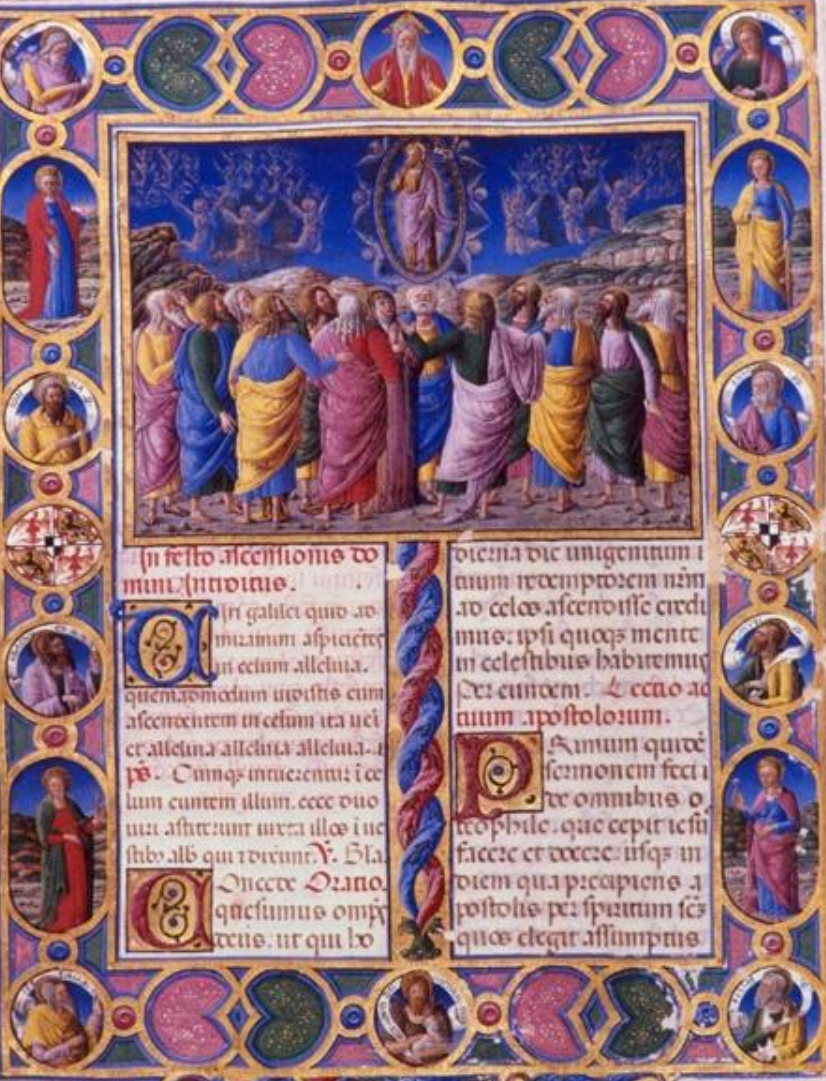 In festo ascensionis do
mini Introitus.
Uiri galilei quid ad
miramini aspicietes
in celum alleluia.
quemadmodum uidistis eum
ascendentem in celum ita
et alleluia alleluia alleluia.
ps. Cumqz intuerentur i ce
lum euntem illum. ecce duo
uiri astiterunt iuxta illos i ue
stibꝰ alb qui ⁊ dixeunt. V. Gla.
Concede Oratio.
quesumus omps
deus. ut qui ho
dierna die unigenitum
tuum redemptorem nrm
ad celos ascendisse credi
mus: ipsi quoqz mente
in celestibus habitemus
Per eundem. Lectio ac
tuum apostolorum.
Primum quidē
sermonem feci
de omnibus o
teophile. que cepit iesu
facere et docere: usqz in
diem qua precipiens a
postolis per spiritum scz
quos elegit assumptus